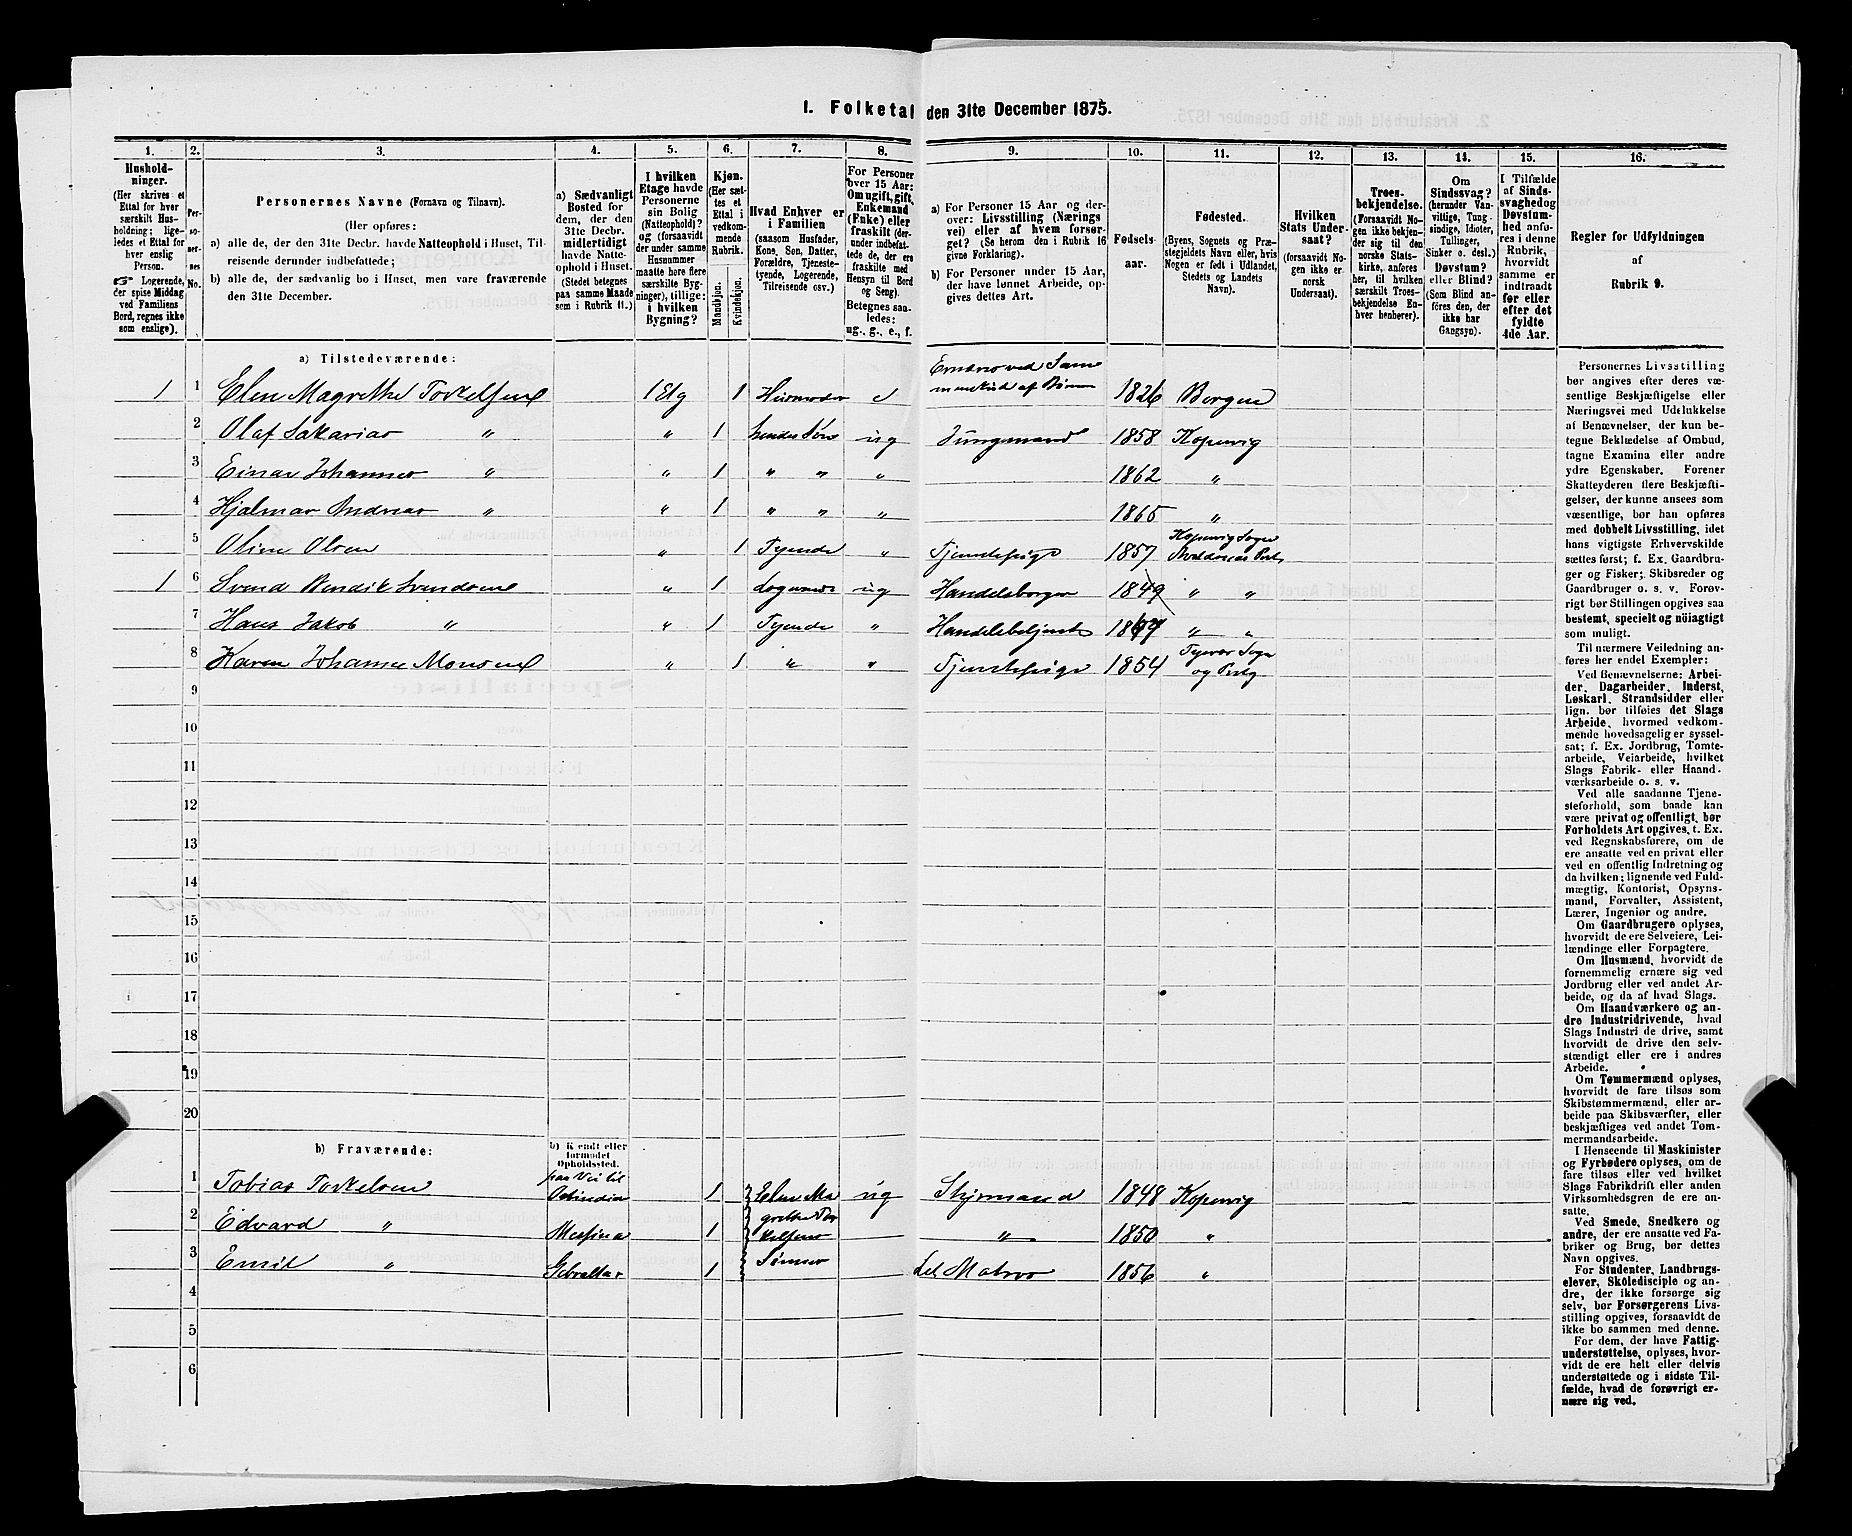 1. Folketal den 31te December 1875.
1.
Hushold-
ninger.
(Her skrives et
Ettal for hver
særskilt Hus-
holdning; lige-
ledes et Ettal for
hver enslig
Person.
☞ Logerende,
der spise Middag
ved Familiens
Bord, regnes ikke
som enslige).
2.
Per-
so-
ner-
nes
No.
3.
Personernes Navne (Fornavn og Tilnavn).
(Her opføres:
a) alle de, der den 31te Decbr. havde Natteophold i Huset, Til-
reisende derunder indbefattede;
b) alle de, der sædvanlig bo i Huset, men vare fraværende
den 31te December.
4.
a) Sædvanligt
Bosted for
dem, der den
31te Decbr.
midlertidigt
havde Natte-
ophold i Huset.
(Stedet betegnes
paa samme Maade
som i Rubrik 11.)
5.
I hvilken
Etage havde
Personerne
sin Bolig
(Natteophold)?
og (forsaavidt
der under samme
Husnummer
maatte høre flere
særskilte Byg-
ninger), tillige:
i hvilken
Bygning?
6.
Kjøn.
(Her sæt-
tes et
Ettal i
vedkom-
mende
Rubrik.
Mandkjøn.
Kvindekjøn.
7.
Hvad Enhver er
i Familien
(saasom Husfader,
Kone, Søn, Datter,
Forældre, Tjeneste-
tyende, Logerende,
Tilreisende osv.)
8.
For Personer
over 15 Aar:
Om ugift, gift,
Enkemand
(Enke) eller
fraskilt (der-
under indbefat-
tede de, der ere
fraskilte med
Hensyn til Bord
og Seng).
Betegnes saa-
ledes:
ug., g., e., f.
9.
a) For Personer 15 Aar og der-
over: Livsstilling (Nærings
vei) eller af hvem forsør-
get? (Se herom den i Rubrik 16
givne Forklaring).
b) For Personer under 15 Aar,
der have lønnet Arbeide, op-
gives dettes Art.
10.
Fødsels-
aar.
11.
Fødested.
(Byens, Sognets og Præ-
stegjeldets Navn eller, hvis
Nogen er født i Udlandet,
Stedets og Landets
Navn).
12.
Hvilken
Stats Under-
saat?
(forsaavidt No-
gen ikke er
norsk
Undersaat).
13.
Troes-
bekjendelse.
(Forsaavidt No-
gen ikke bekjen-
der sig til den
norske Stats-
kirke, anføres
her, til hvilken
særskilt Troes-
bekjendelse En-
hver henhører).
14.
Om
Sindssvag?
(herunder Van-
vittige, Tung-
sindige, Idioter,
Tullinger,
Sinker o. desl.)
Døvstum?
eller Blind?
(Som Blind an-
føres den, der
ikke har
Gangsyn).
15.
I Tilfælde
af Sinds-
svaghed og
Døvstum-
hed anfø-
res i denne
Rubrik,
hvorvidt
samme er
indtraadt
før eller
efter det
fyldte
4de Aar.
16.
Regler for Udfyldningen
af
Rubrik 9.
a) Tilstedeværende:
1 1 Elen Magrethe Torkelsen 1 Etg 1 Husmoder e Ernæres ved Sam- menskud af Børnene 1826 Bergen
2 Olaf Sakarias " " 1 hendes Søn ug Jungmand 1858 Kopervig
3 Einar Johannes " " 1 " " " 1862 "
4 Hjalmar Andreas " " 1 " " " 1865 "
5 Oline Olsen " 1 Tyende " Tjenestepige 1857 Kopervig Sogn Avaldsnæs Prstg
1 6 Svend Bendik Svendsen " 1 Logerende ug Handelsborger 1849 " "
7 Hans Jakob " " 1 Tyende " Handelsbetjent " "
8 Karen Johanne Monsen " 1 " " Tjenestepige 1854 Tysvær Sogn og Prstg
9
10
11
12
13
14
15
16
17
18
19
20
b) Fraværende:
b) Kendt eller
formodet
Opholdssted.
1 Tobias Torkelsen paa Vei til Ostindien 1 Elen Ma- ug Styrmand 1848 Kopervig
2 Edvard " Messina 1 grethe Tor- kelsens " 1850 "
3 Emil " Gibraltar 1 Sønner Matros 1856 "
4
5
6
Personernes Livsstilling
bør angives efter deres væ-
sentlige Beskjæftigelse eller
Næringsvei med Udelukkelse
af Benævnelser, der kun be-
tegne Beklædelse af Ombud,
tagne Examina eller andre
ydre Egenskaber. Forener
Skatteyderen flere Beskjæfti-
gelser, der kunne ansees som
væsentlige, bør han opføres
med dobbelt Livsstilling, idet
hans vigtigste Erhvervskilde
sættes først; f. Ex. Gaardbru-
ger og Fisker; Skibsreder og
Gaardbruger o. s. v. Forøv-
rigt bør Stillingen opgives saa
bestemt, specielt og nöiagtigt
som muligt.
Til nærmere Veiledning an-
føres her endel Exempler:
Ved Benævnelserne: Arbei-
der, Dagarbeider, Inderst,
Løskarl, Strandsidder eller
lign. bør tilføies det Slags
Arbeide, hvormed vedkom-
mende hovedsagelig er syssel-
sat; f. Ex. Jordbrug, Tømte-
arbeide, Veiarbeide, hvilket
Slags Fabrik- eller Haand-
værksarbeide o. s. v.
Ved alle saadanne Tjene-
steforhold, som baade kan
være privat og offentligt, bør
Forholdets Art opgives, t. Ex.
ved Regnskabsførere, om de
ere ansatte ved en privat eller
ved en offentlig Indretning og
da hvilken; lignende ved Fuld-
mægtig, Kontorist, Opsyns-
mand, Forvalter, Assistent,
Lærer, Ingeniør og andre.
Om Gaardbrugere oplyses,
hvorvidt de ere Selveiere, Lei-
lændinge eller Forpagtere.
Om Husmænd, hvorvidt de
fornemmelig ernære sig ved
Jordbrug eller ved andet Ar-
beide, og da af hvad Slags.
Om Haandværkere og an-
dre Industridrivende, hvad
Slags Industri de drive, samt
hvorvidt de drive den selv-
stændigt eller ere i andres
Arbeide.
Om Tømmermænd oplyses,
hvorvidt de fare tilsøs som
Skibstømmermænd, eller ar-
beide paa Skibsværfter, eller
beskjæftiges ved andet Tøm-
mermandsarbeide.
I Henseende til Maskinister
og Fyrbødere oplyses, om de
fare tilsøs eller ved hvilket
Slags Fabrikdrift eller anden
Virksomhedsgren de ere an-
satte.
Ved Smede, Snedkere og
andre, der ere ansatte ved Fa-
briker og Brug, bør dettes
Navn opgives.
For Studenter, Landbrugs-
elever, Skoledisciple og an-
dre, der ikke forsørge sig
selv, bør Forsørgerens Livs-
stilling opgives, forsaavidt de
ikke bo sammen med denne.
For dem, der have Fattig-
understøttelse, oplyses, hvor-
vidt de ere helt eller delvis
understøttede og i sidste Til-
fælde, hvad de forøvrigt er-
nære sig ved.